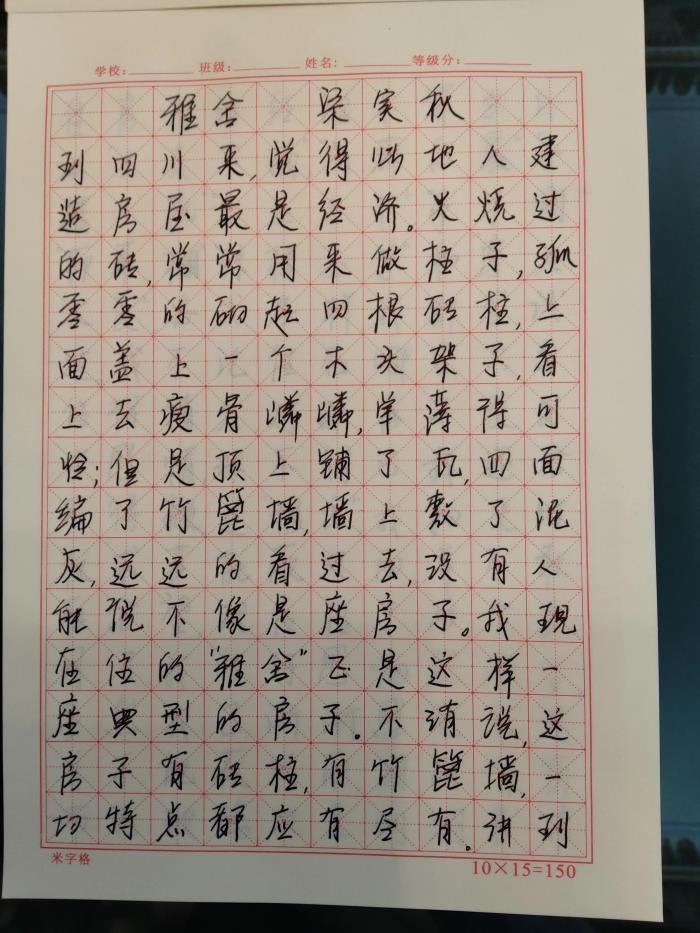 学校：　班级：　姓名：　等级分：
雅舍　梁实秋
到四川来，觉得此地人建
造房屋最是经济。火烧过
的砖，常常用来做柱子，孤
零零的砌起四根砖柱，上
面盖上一个木头架子，看
上去瘦骨嶙嶙，单薄得可
怜；但是顶上铺了瓦，四面
编了竹篦墙，墙上敷了泥
灰，远远的看过去，没有人
能说不像是座房子。我现
在住的“雅舍”正是这样一
座典型的房子。不消说，这
房子有砖柱，有竹篦墙，一
切特点都应有尽有。讲到
米字格　10×15=150